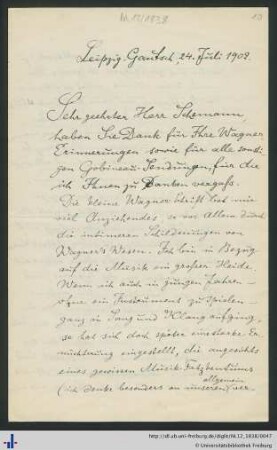 NL 12/1838
10
Leipzig-Gautzsch, 24. Juli 1902.
Sehr geehrter Herr Schemann,
haben Sie Dank für Ihre Wagner
Erinnerungen sowie für alle sonsti-
gen Gobineau-Sendungen, für die
ich Ihnen zu danken vergass.
Die kleine Wagnerschrift hat mir
viel Anziehendes, so vor Allem durch
die intimeren Schilderungen von
Wagner's Wesen. Ich bin in Bezug
auf die Musik ein grosser Heide.
Wenn ich auch in jungen Jahren –
ohne ein Instrument zu spielen –
ganz in Sang und Klang aufging,
so hat sich doch später eine starke Er-
nüchterung eingestellt, die angesichts
eines gewissen Musik-Fatzkentums
allgemein
(ich denke besonders an unseren
http://dl.ub.uni-freiburg.de/diglit/NL12_1838/0047
© Universitätsbibliothek Freiburg